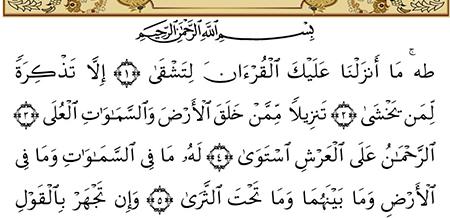 بِسْمِ ٱللَّهِ ٱلرَّحْمَٰنِ ٱلرَّحِيمِ
طه ۚ مَا أَنزَلْنَا عَلَيْكَ ٱلْقُرْءَانَ لِتَشْقَىٰ ﴿١﴾ إِلَّا تَذْكِرَةً
لِمَن يَخْشَىٰ ﴿٢﴾ تَنزِيلًا مِمَّنْ خَلَقَ ٱلْأَرْضَ وَٱلسَّمَٰوَٰتِ ٱلْعُلَى ﴿٣﴾
ٱلرَّحْمَٰنُ عَلَى ٱلْعَرْشِ ٱسْتَوَىٰ ﴿٤﴾ لَهُۥ مَا فِى ٱلسَّمَٰوَٰتِ وَمَا فِى
ٱلْأَرْضِ وَمَا بَيْنَهُمَا وَمَا تَحْتَ ٱلثَّرَىٰ ﴿٥﴾ وَإِن تَجْهَرْ بِٱلْقَوْلِ